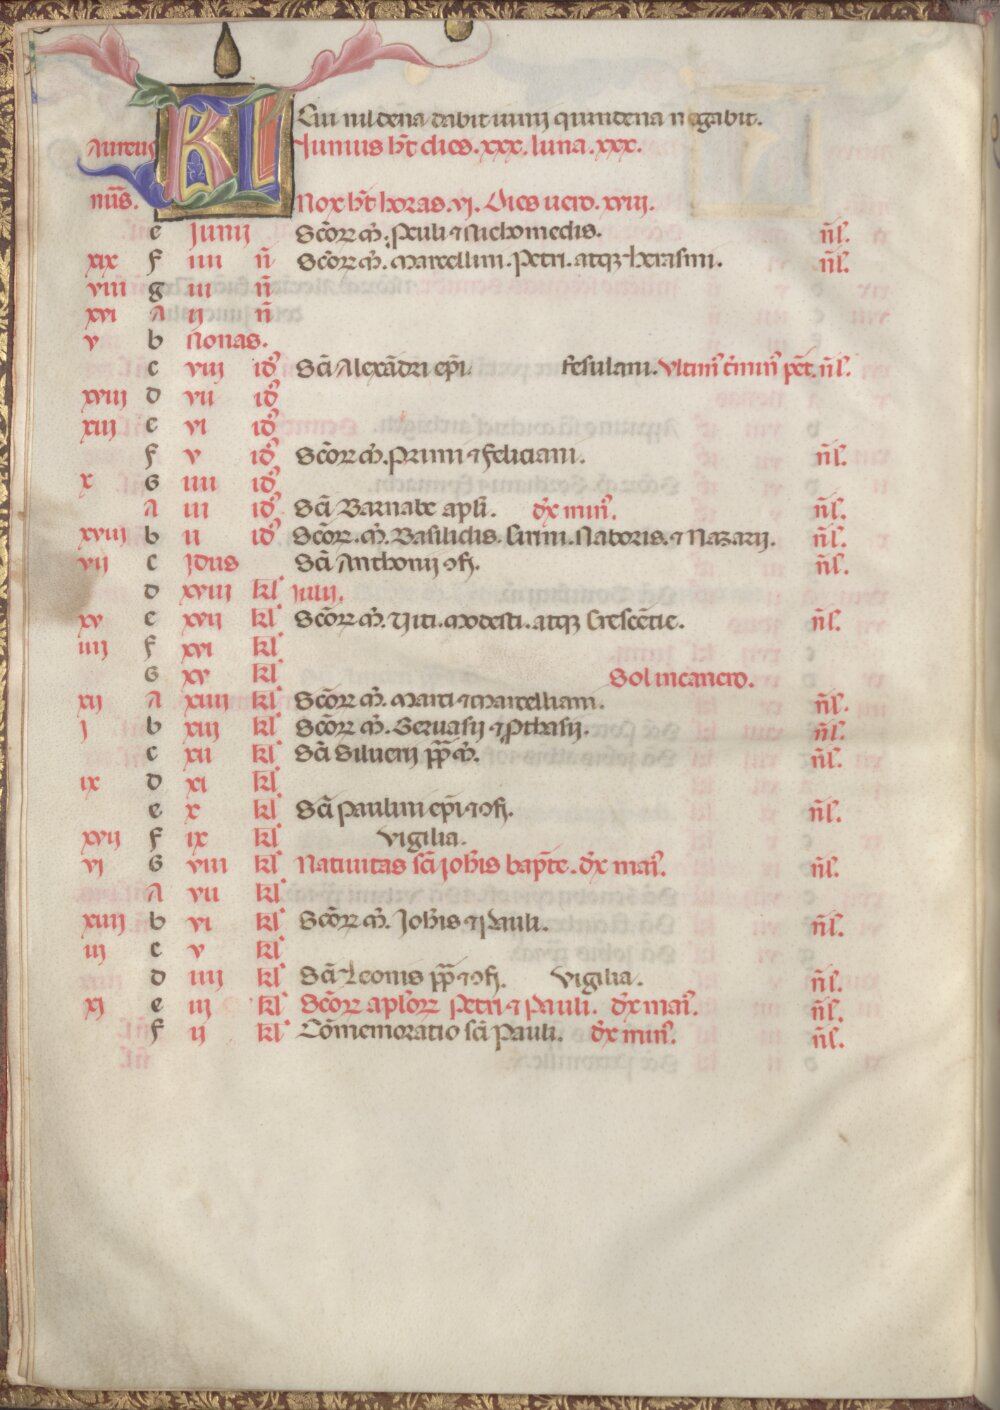 KL Cui nil dena dabit iunij quindena negabit.
Aureus Iunius ht dies .xxx. luna .xxx.
nus. Nox ht horas .vj. Dies uero .xviij.
e Junij Scorz m. Peuli ⁊ Nichomedis. nl.
xix f iiii n Scorz m. Marcellini. Petri. atqz herasmi. nl.
viii g iii n
xvi A ii n
v b Nonas.
c viii id Sci Alexadri epi. fesulani. nl.
xviii d vii id
xiii e vi id
f v id Scorz m. Primi ⁊ Feliciani. nl.
x G iiii id
A iii id Sci Barnabe apli. dx min. nl.
xviiii b ii id Scorz. m. Basilidis. Cirini. Naboris. ⁊ Nazarij. nl.
vii c Jdus Sci Anthonij ꝯf. nl.
d xviii kl iulij.
xv e xvii kl Scorz m. Viti. Modesti. atqz Crescetie. nl.
iiii f xvi kl
G xv kl Sol in cancro.
xii A xiiii kl Scorz m. Marci ⁊ Marcelliani. nl.
j b xiii kl Scorz m. Geruasij ⁊ Pthasij. nl.
c xii kl Sci Siluerij pp m. nl.
ix d xi kl
e x kl Sci Paulini epi ⁊ ꝯf. nl.
xvii f ix kl vigilia.
vi G viii kl Natiuitas sci Johis bapte. dx mai. nl.
A vii kl
xiiii b vi kl Scorz m. Johis ⁊ Pauli. nl.
iii c v kl
d iiii kl Sci Leonis pp ⁊ ꝯf. vigilia. nl.
xi e iii kl Scorz aplorz Petri ⁊ Pauli. dx mai. nl.
f ii kl Comemoratio sci Pauli. dx min. nl.